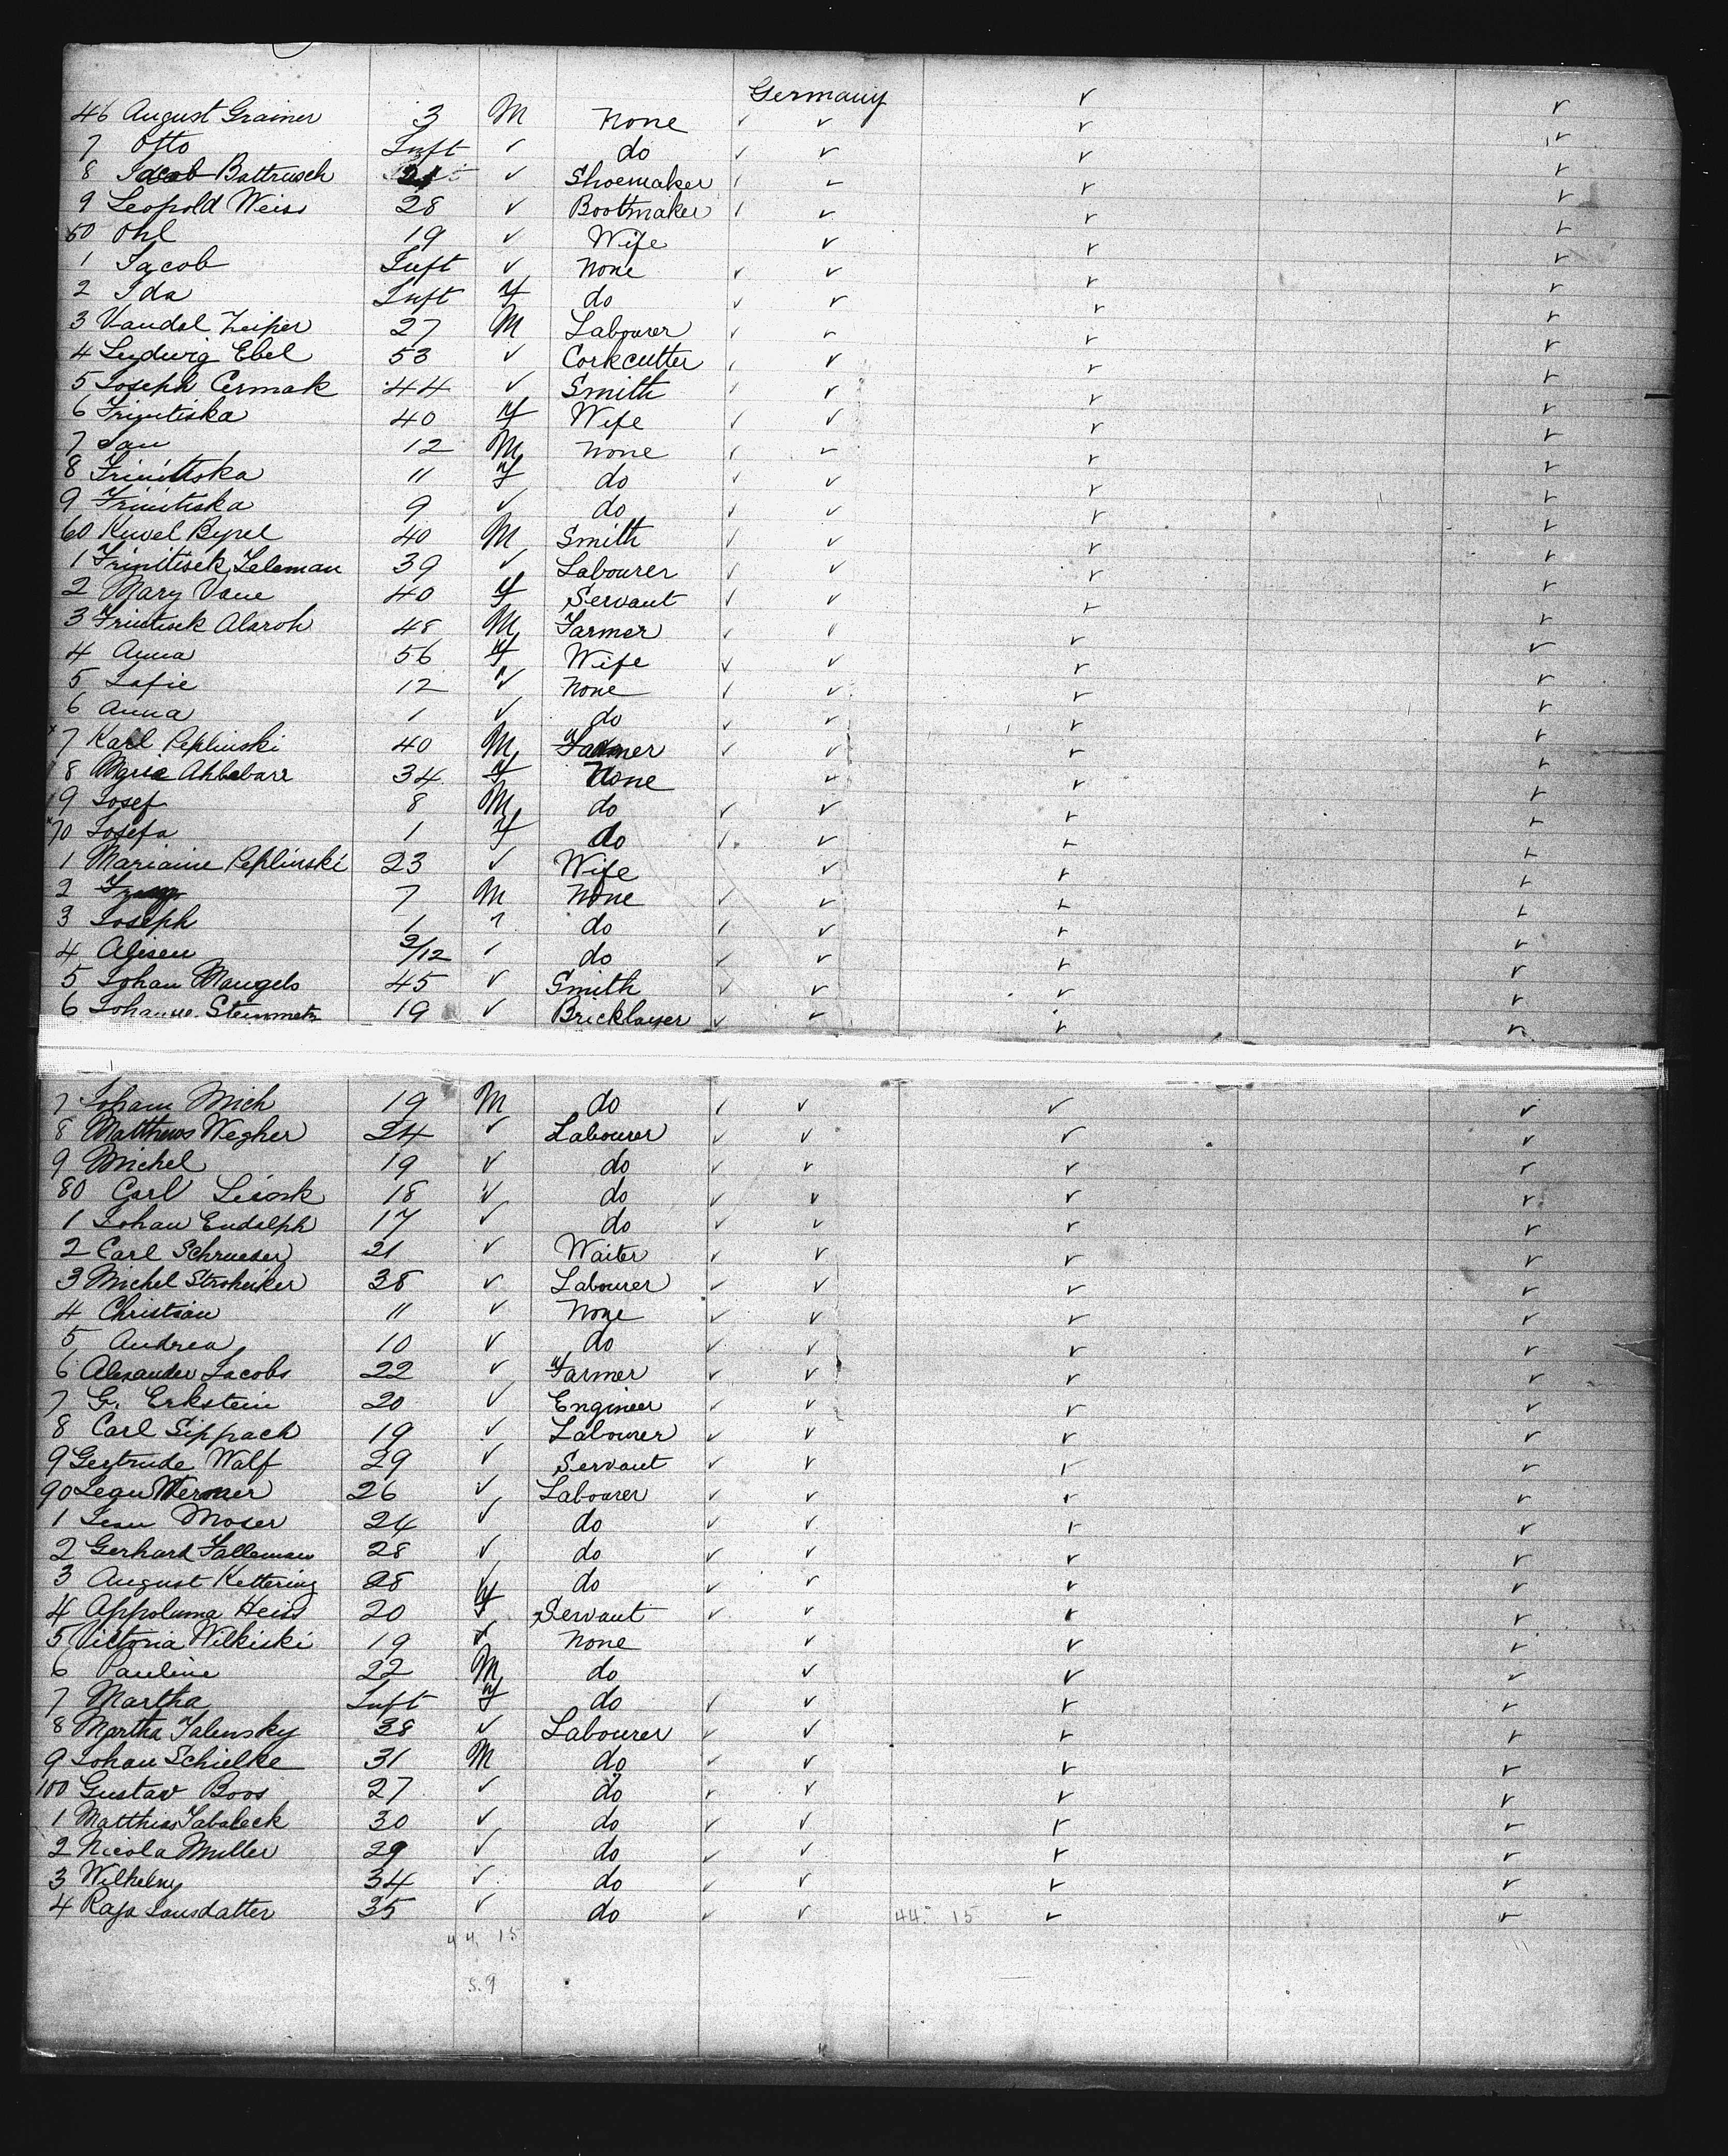 Germany
46 August Grainer 3 M None ✓ ✓ ✓ ✓
7 Otto Inft ✓ do ✓ ✓ ✓ ✓
8 Jacob Battrusch 21 ✓ Shoemaker ✓ ✓ ✓ ✓
9 Leopold Weiss 28 ✓ Bootmaker ✓ ✓ ✓ ✓
50 Ohl 19 ✓ Wife ✓ ✓ ✓
1 Jacob Inft ✓ None ✓ ✓ ✓ ✓
2 Ida Inft f do ✓ ✓ ✓ ✓
3 Vandel Zeiper 27 M Labourer ✓ ✓ ✓ ✓
4 Ludwig Ebel 53 ✓ Corkcutter ✓ ✓ ✓ ✓
5 Joseph Cermak 44 ✓ Smith ✓ ✓ ✓ ✓
6 Frintiska 40 f Wife ✓ ✓ ✓ ✓
7 Jan 12 M None ✓ ✓ ✓ ✓
8 Frinitiska 11 f do ✓ ✓ ✓ ✓
9 Frinitiska 9 ✓ do ✓ ✓ ✓ ✓
60 Kuvel Byrel 40 M Smith ✓ ✓ ✓ ✓
1 Frinitisek Zeleman 39 ✓ Labourer ✓ ✓ ✓ ✓
2 Mary Vane 40 f Servant ✓ ✓ ✓ ✓
3 Frintisek Alaroh 48 M Farmer ✓ ✓ ✓ ✓
4 Anna 56 f Wife ✓ ✓ ✓ ✓
5 Lafie 12 ✓ None ✓ ✓ ✓ ✓
6 Anna 1 ✓ do ✓ ✓ ✓ ✓
x 7 Karl Peplinski 40 M Farmer ✓ ✓ ✓ ✓
8 Maria Ahlabarr 34 f None ✓ ✓ ✓
9 Josef 8 M do ✓ ✓ ✓ ✓
x 70 Josefa 1 f do ✓ ✓ ✓ ✓
1 Mariaine Peplinski 23 ✓ Wife ✓ ✓ ✓
2 7 M None ✓ ✓ ✓ ✓
3 Joseph 1 ✓ do ✓ ✓ ✓ ✓
4 Alisen 2/12 ✓ do ✓ ✓ ✓ ✓
5 Johan Mangels 45 ✓ Smith ✓ ✓ ✓ ✓
6 Johanne Steinmetz 19 ✓ Bricklayer ✓ ✓ ✓ ✓
7 Joham Mich 19 M do ✓ ✓ ✓ ✓
8 Matthews Wegher 24 ✓ Labourer ✓ ✓ ✓ ✓
9 Michel 19 ✓ do ✓ ✓ ✓ ✓
80 Carl 18 ✓ do ✓ ✓ ✓ ✓
1 Johan Endolph 17 ✓ do ✓ ✓ ✓ ✓
2 Carl Schrueder 21 ✓ Waiter ✓ ✓ ✓ ✓
3 Michel Stroheker 38 ✓ Labourer ✓ ✓ ✓ ✓
4 Christian 11 ✓ None ✓ ✓ ✓ ✓
5 Andrea 10 ✓ do ✓ ✓ ✓ ✓
6 Alexander Jacobs 22 ✓ Farmer ✓ ✓ ✓ ✓
7 G. Erkstein 20 ✓ Engineer ✓ ✓ ✓ ✓
8 Carl Sippach 19 ✓ Labourer ✓ ✓ ✓ ✓
9 Gertrude Walf 29 ✓ Servant ✓ ✓ ✓ ✓
90 Jean Werner 26 ✓ Labourer ✓ ✓ ✓ ✓
1 Jean Moser 24 ✓ do ✓ ✓ ✓ ✓
2 Gerhard Falleman 28 ✓ do ✓ ✓ ✓ ✓
3 August Kettering 28 ✓ do ✓ ✓ ✓ ✓
4 Appoluma Heiss 20 f Servant ✓ ✓ ✓ ✓
5 Victoria Wilkiski 19 ✓ None ✓ ✓ ✓
6 Pauline 22 M do ✓ ✓ ✓
7 Martha Inft f do ✓ ✓ ✓ ✓
8 Martha Jalensky 38 ✓ Labourer ✓ ✓ ✓ ✓
9 Johan Schielke 31 M do ✓ ✓ ✓ ✓
100 Gustav Boos 27 ✓ do ✓ ✓ ✓ ✓
1 Matthias Tabaleck 30 ✓ do ✓ ✓ ✓ ✓
2 Nicola Muller 29 ✓ do ✓ ✓ ✓ ✓
3 Wilhelmy 34 ✓ do ✓ ✓ ✓ ✓
4 Rafa Jansdatter 35 ✓ do ✓ ✓ 44. 15 ✓ ✓
44. 15
5.9